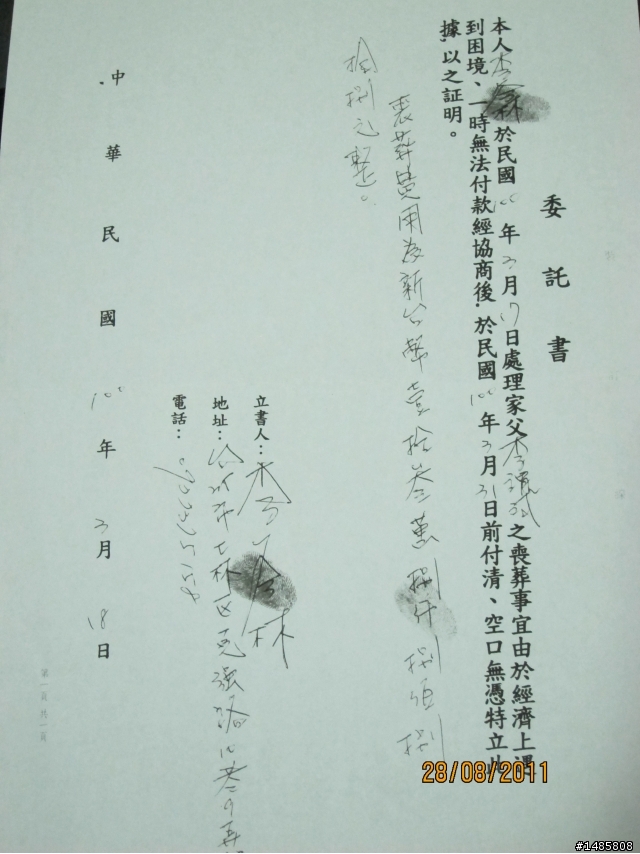 委託書
本人李  林於民國100年3月17日處理家父李  之喪葬事宜由於經濟上遇
到困境、一時無法付款經協商後.於民國100年3月31日前付清、空口無憑特立此
據,以之証明。
喪葬費用為新台幣壹拾參萬捌仟捌佰捌
拾捌元整。
立書人：李  林
地址：  市士林區克強路
電話：
中華民國100年3月18日
第一頁 共一頁
28/08/2011
#1485808